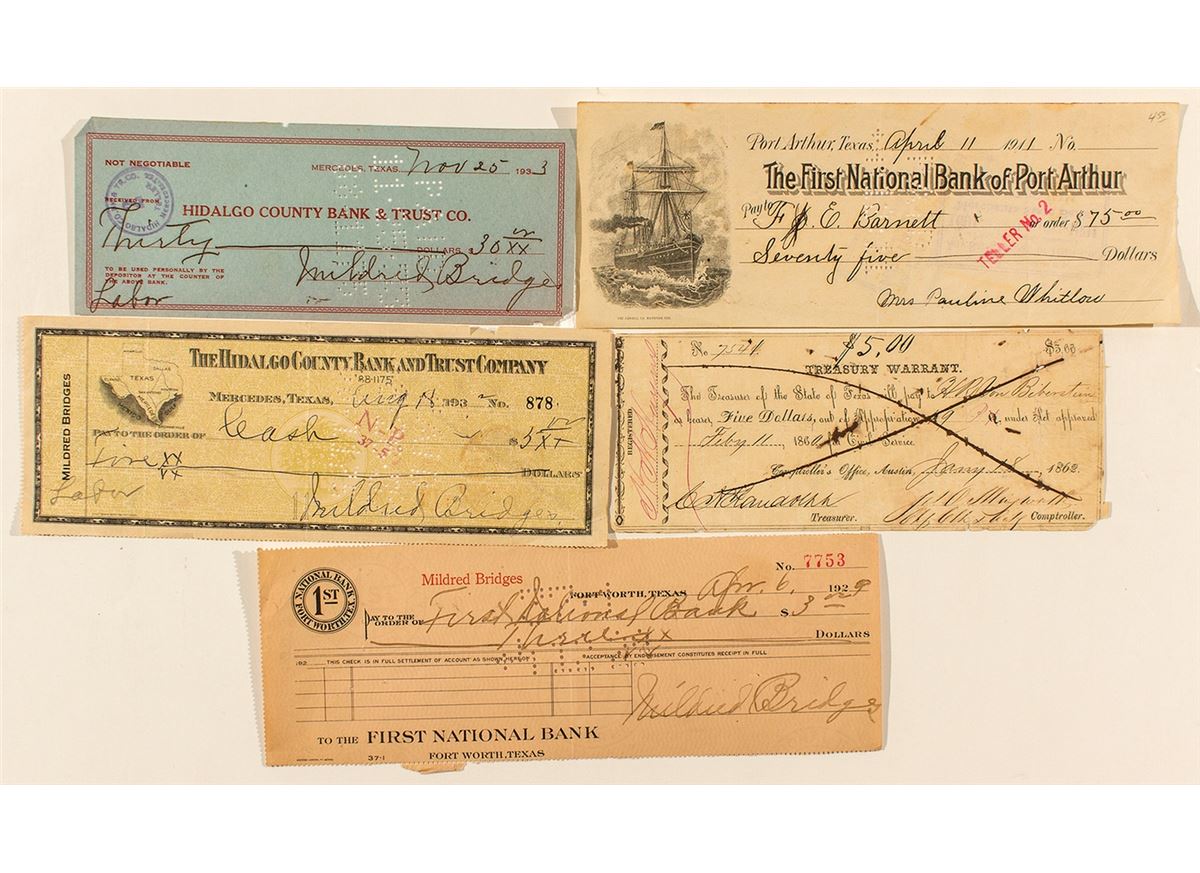 NOT NEGOTIABLE
MERCEDES, TEXAS, Nov 25 1933
RECEIVED FROM
HIDALGO COUNTY BANK & TRUST CO.
Thirty DOLLARS, $30 00/XX
TO BE USED PERSONALLY BY THE
DEPOSITOR AT THE COUNTER OF
THE ABOVE BANK.
Mildred Bridges
Labor
45
Port Arthur, Texas, April 11 1911 No.
The First National Bank of Port Arthur
Pay to F E Barnett or order $75 00
TELLER No. 2
Seventy five Dollars
Mrs Pauline Whitlow
MILDRED BRIDGES
TEXAS
DALLAS
THE HIDALGO COUNTY BANK AND TRUST COMPANY
88-1175
MERCEDES, TEXAS, Aug 18 1932 No. 878
PAY TO THE ORDER OF Cash $5 00/XX
Five XX/XX DOLLARS
Labor
Mildred Bridges
No $5,00 $5.00
TREASURY WARRANT.
REGISTERED
The Treasurer of the State of Texas will pay to Biberstein
or bearer, Five Dollars, out of Appropriation under Act approved
Feby 11, 186 for Civil Service
Comptroller's Office, Austin, Jany 1862
C H Randolph
Treasurer. Comptroller.
No. 7753
Mildred Bridges
NATIONAL BANK
1ST
FORT WORTH, TEX.
FORT WORTH, TEXAS Apr. 6, 1929
PAY TO THE
ORDER OF First National Bank $3 00
Three XX DOLLARS
192 THIS CHECK IS IN FULL SETTLEMENT OF ACCOUNT AS SHOWN HEREON ACCEPTANCE BY ENDORSEMENT CONSTITUTES RECEIPT IN FULL
Mildred Bridges
TO THE FIRST NATIONAL BANK
37-1 FORT WORTH, TEXAS